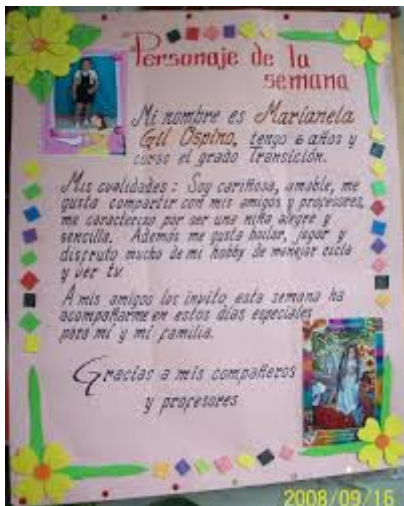 Personaje de la
semana
Mi nombre es Marianela
Gil Ospino, tengo 6 años y
curso el grado Transición.
Mis cualidades: Soy cariñosa, amable, me
gusta compartir con mis amigos y profesores,
me caracterizo por ser una niña alegre y
sencilla. Además me gusta bailar, jugar y
disfruto mucho de mi hobby de manejar cicla
y ver tv.
A mis amigos los invito esta semana ha
acompañarme en estos días especiales
para mí y mi familia.
Gracias a mis compañeros
y profesores
2008/09/16